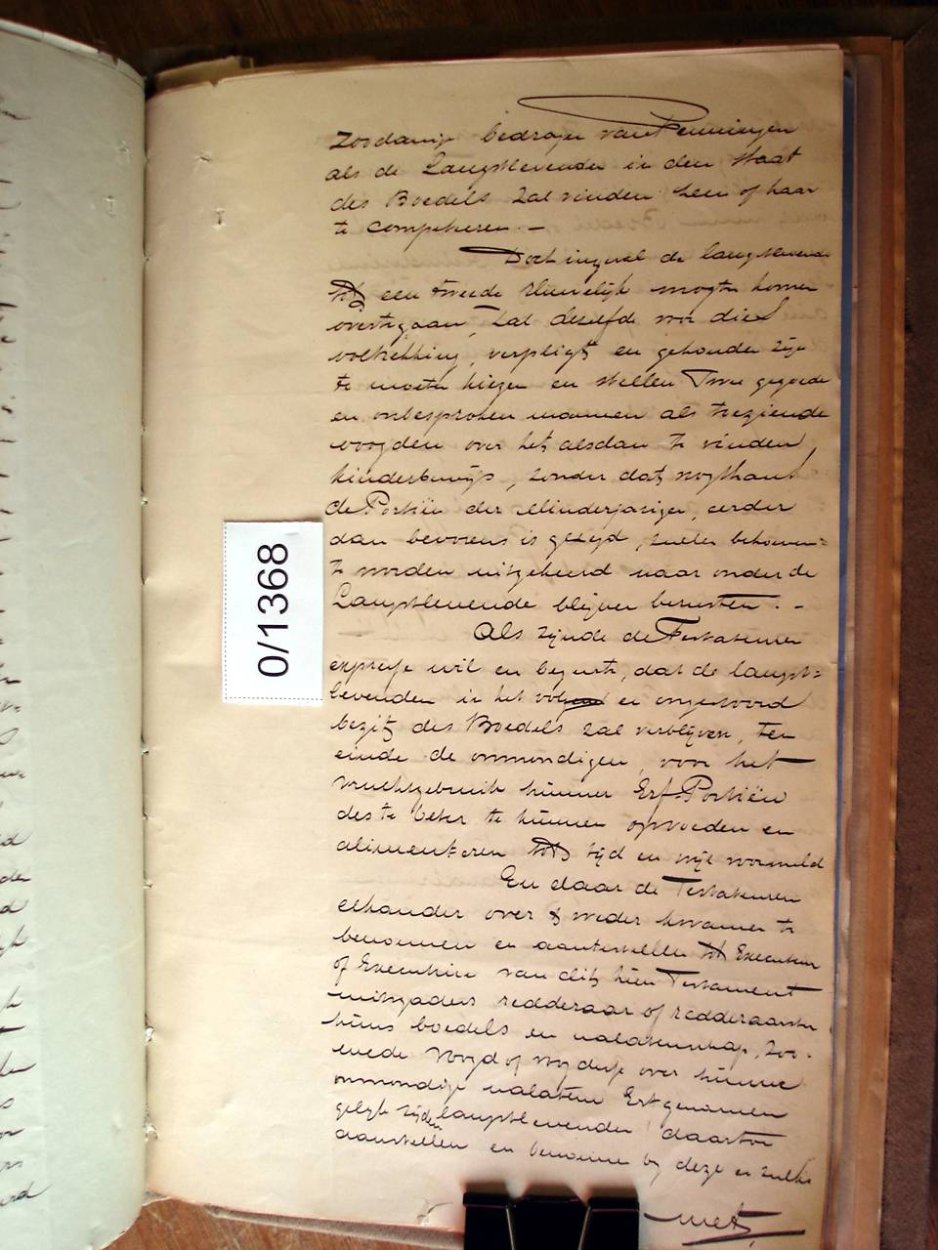 Zoodanig bedragen van Penningen
als de Langstlevende in den Staat
des Boedels zal vinden hem of haar
te competeren. —
Doch ingeval de langstlevende
tot een tweede Huwelijk mogte komen
overtegaan, zal deselfde voor dies
voltrekking, verpligt en gehouden zijn
te moeten kiezen en stellen Twee gegoede
en onbesproken mannen als toeziende
voogden over het alsdan te vinden
kinderbewijs, zonder dat nogthans
de Portiën der Minderjarigen, eerder
dan bevorens is gezegd, zullen behoeven
te worden uitgekeerd maar onder de
Langstlevende blijven berusten. —
Als zijnde de Testateuren
expresse wil en begeerte, dat de langst-
levenden in het vol en ongestoord
bezit des Boedels zal verblijven, ten
einde de onmondigen, voor het
vruchtgebruik hunner Erf-Portiën
des te beter te kunnen opvoeden en
alimenteren tot tijd en wijl voormeld
En daar de Testateuren
elkander over & weder kwamen te
benoemen en aantestellen tot Executeur
of Executrice van dit hun Testament
mitsgaders redderaar of redderaarster
huns boedels en nalatenschap, Zoo-
mede Voogd of Voogdesse over hunne
onmondige nalaten Erfgenamen
gelijk zij den langstlevenden daartoe
aanstellen en benoemen by deze en zulks
met
0/1368